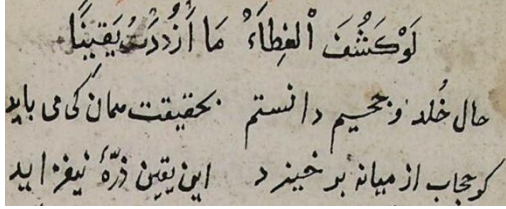 لَوْ كَشُفَ الْغِطَاءُ مَا أَزْدَدْتُ يَقِينًا
حال خُلد و جحیم دانستم بحقیقت همان که می باید
کر حجاب از میانه بر خیزد این یقین ذرّهٔ نیفزاید